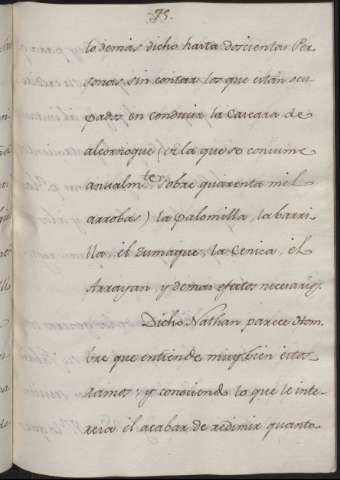 75.
lo demas dicho hasta doscientas Per-
sonas sin contar los que están ocu-
pados en conducir la Cascara de
alcornoque (de la que se consume
anualm.te sobre quarenta mil
arrobas) la palomilla, la barri-
lla, el zumaque, la Ceniza, el
Arrayan, y demas efectos necesarios.
Dicho Nathan parece Hom-
bre que entiende muy bien estos
ramos; y conociendo lo que le inte-
resa el acabar de redimir quanto